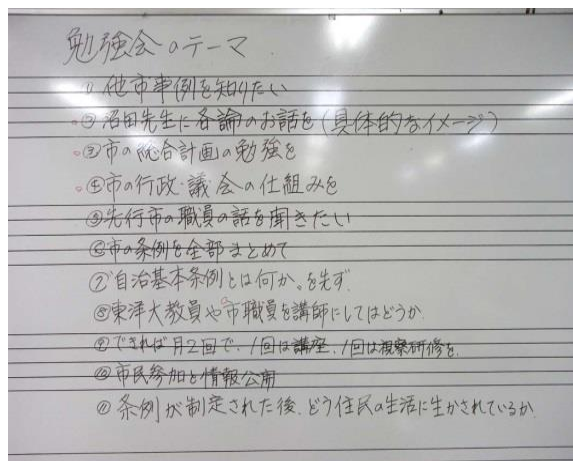 勉強会のテーマ
① 他市事例を知りたい
②沼田先生に各論のお話を(具体的なイメージ)
③市の総合計画の勉強を
④市の行政・議会の仕組みを
⑤先行市の職員の話を聞きたい
⑥市の条例を全部まとめて
⑦自治基本条例とは何か。を先ず
⑧東洋大教員や市職員を講師にしてはどうか
⑨できれば月2回で、1回は講座、1回は視察研修を
⑩市民参加と情報公開
⑪条例が制定された後、どう住民の生活に生かされているか